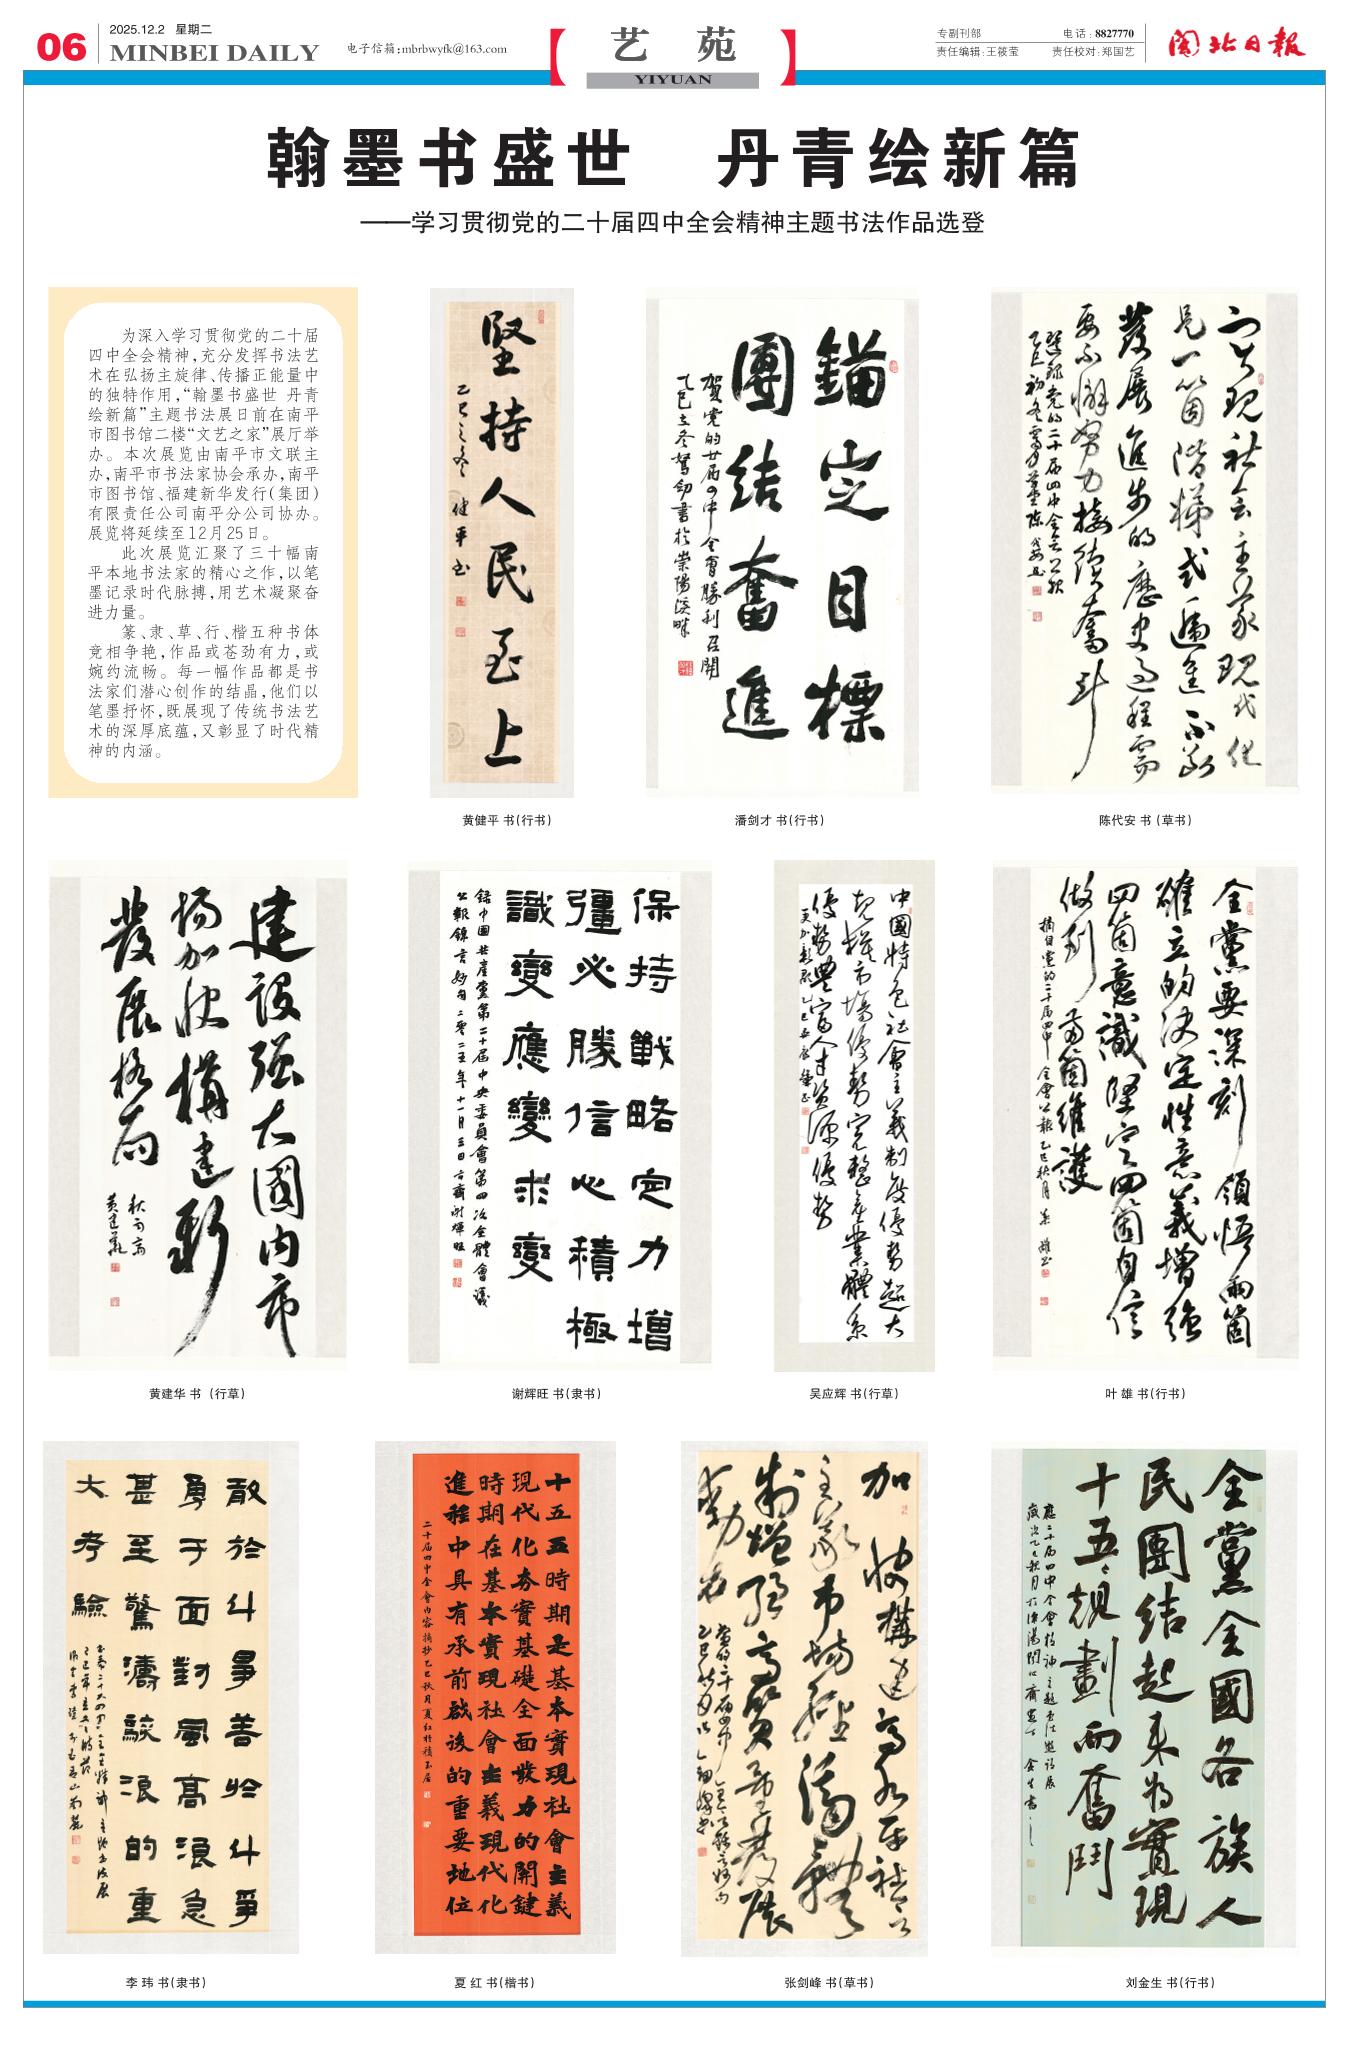 06
2025.12.2 星期二
MINBEI DAILY
电子信箱:mbrbwyfk@163.com
【 艺 苑 】
YIYUAN
专副刊部 电话:8827770
责任编辑:王筱莹 责任校对:郑国艺
闽北日报
翰墨书盛世 丹青绘新篇
——学习贯彻党的二十届四中全会精神主题书法作品选登
为深入学习贯彻党的二十届
四中全会精神,充分发挥书法艺
术在弘扬主旋律、传播正能量中
的独特作用,“翰墨书盛世 丹青
绘新篇”主题书法展日前在南平
市图书馆二楼“文艺之家”展厅举
办。本次展览由南平市文联主
办,南平市书法家协会承办,南平
市图书馆、福建新华发行(集团)
有限责任公司南平分公司协办。
展览将延续至12月25日。
此次展览汇聚了三十幅南
平本地书法家的精心之作,以笔
墨记录时代脉搏,用艺术凝聚奋
进力量。
篆、隶、草、行、楷五种书体
竞相争艳,作品或苍劲有力,或
婉约流畅。每一幅作品都是书
法家们潜心创作的结晶,他们以
笔墨抒怀,既展现了传统书法艺
术的深厚底蕴,又彰显了时代精
神的内涵。
坚持人民至上
乙巳之冬 健平书
黄健平 书(行书)
錨定目標
團结奮進
贺党的廿届四中全會勝利召開
乙巳立冬
潘剑才 书(行书)
实现社会主义现代化
是一个循
發展進步的歷史过程需
要不懈努力接续奮斗
陈代安 书(草书)
建設强大國内市
场加快構建新
發展格局
黄建华 书(行草)
保持戰略定力增
彊必勝信心積極
識變應變求變
錄中國共產黨第二十届中央委員會第四次全體會議
公報錦言妙句二零二五年十一月三日
谢辉旺 书(隶书)
中國特色社會主义制度優势超大
规模市場優势完整產業體系
優势豐富人才资源優势
吴应辉 书(行草)
全黨要深刻領悟兩個
確立的决定性意義增强
四個意識堅定四個自信
做到兩個維護
摘自黨的二十届四中全會公報乙巳秋月葉雄书
叶 雄 书(行书)
敢於斗爭善於斗爭
勇于面對風高浪急
甚至驚濤駭浪的重
大考驗
李 玮 书(隶书)
十五五時期是基本實現社會主義
現代化夯實基礎全面發力的關鍵
時期在基本實現社會主義現代化
進程中具有承前啟後的重要地位
二十届四中全會内容摘抄乙巳秋月夏红於
夏 红 书(楷书)
加快構建高水平社会
主义市场經濟體
制增强高质量發展
動力
张剑峰 书(草书)
全黨全國各族人
民團结起来为實現
十五五規劃而奮鬥
刘金生 书(行书)